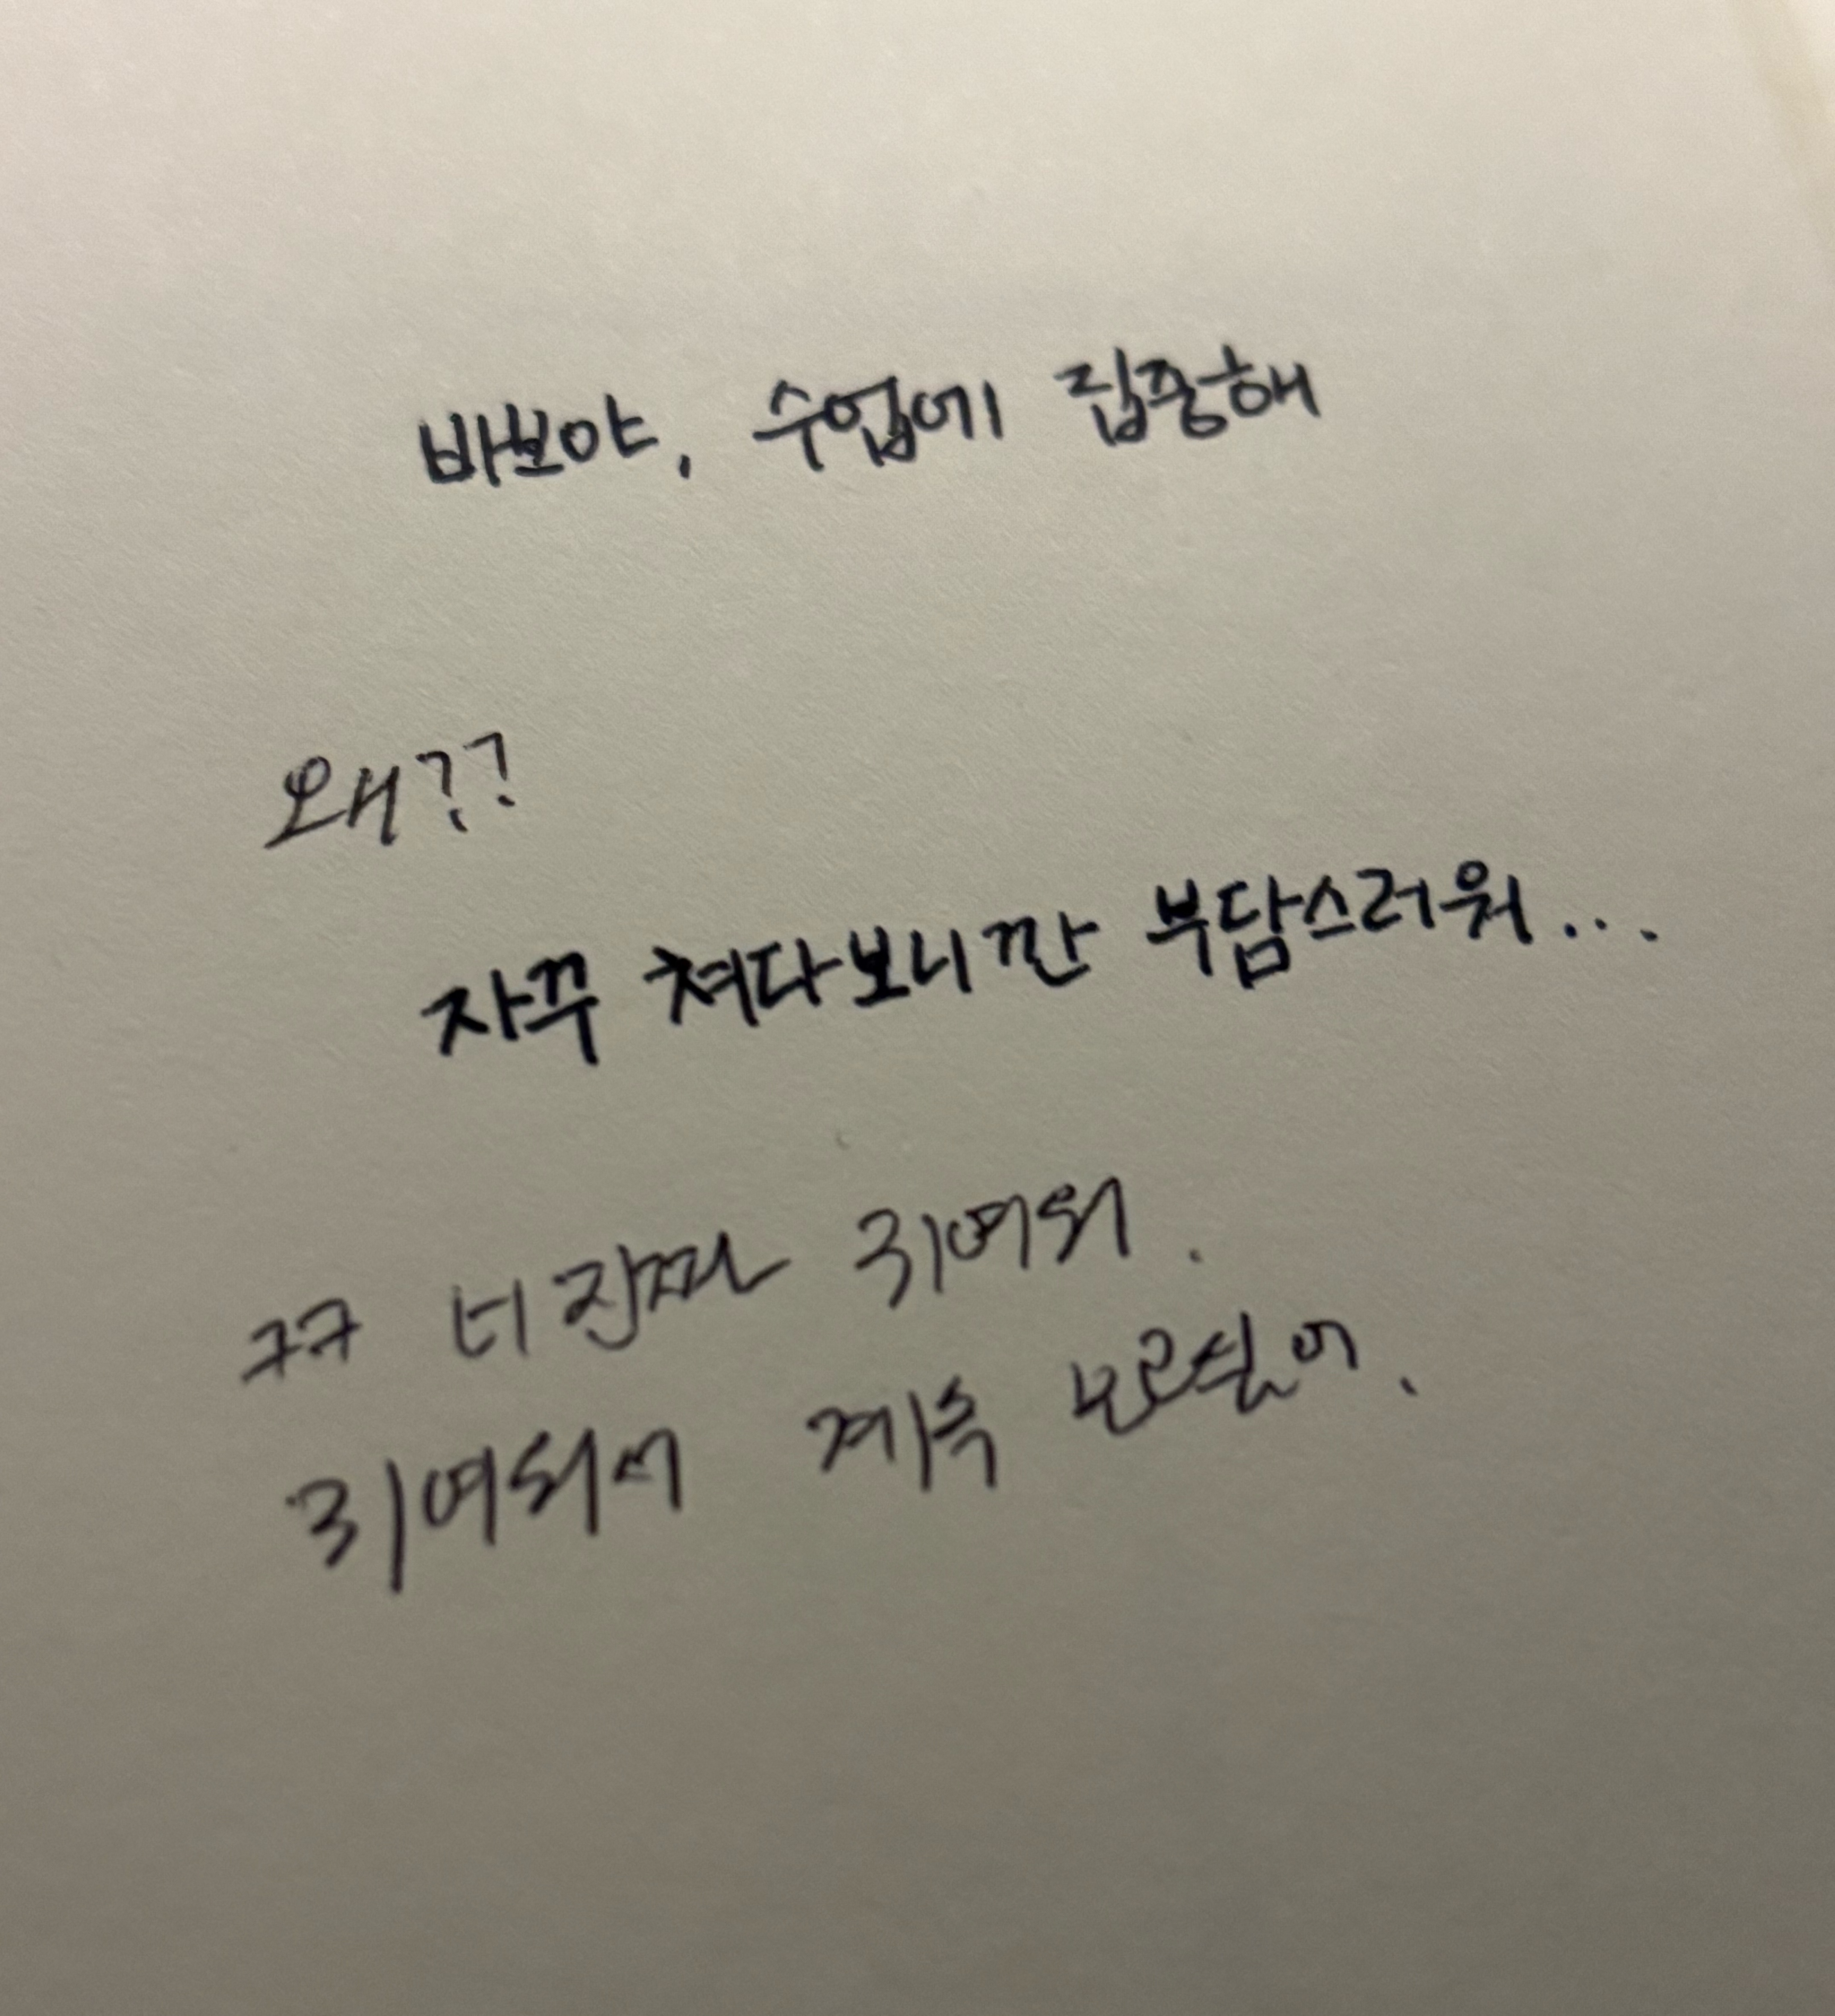 바보야, 수업에 집중해
왜??
자꾸 쳐다보니깐 부담스러워...
ㅋㅋ 너 진짜 귀여워.
귀여워서 계속 보고싶어.